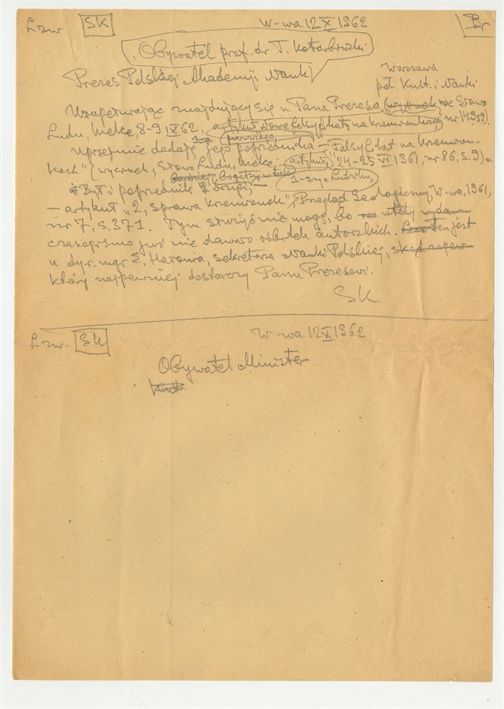 L.zw SK W-wa 12 X 1962 Br
Obywatel prof. dr T. Kotarbiński
Prezes Polskiej Akademii Nauki
Warszawa
Pał. Kult. i Nauki
Uzupełniając znajdujący się u Pana Prezesa wycinek ze Słowa
Ludu, Kielce, 8-9 IX 62, artykuł Nowe falsyfikaty na krzemieniach nr
uprzejmie dodaję jego poprzednika – „Falsyfikat na krzemion-
kach" (wycinek, Słowo Ludu, Kielce, artykuł, 24-25 VI 1961, nr 86, s. 3). –
Był i poprzednik drugi, –
– artykuł „2, sprawa krzemionek", Przegląd Geologiczny, W-wa, 1961,
nr 7, s. 371. Tym służyć nie mogę, bo
czasopismo już nie dawało odbitek autorskich. Ten jest
u dyr. mgr E. Haronia, sekretarza Nauki Polskiej,
który najpewniej dostarczy Panu Prezesowi.
SK
L.zw. SK W-wa 12 X 1962
Obywatel Minister